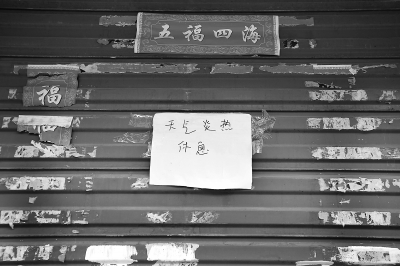 五福四海
福
福
天气炎热
休息